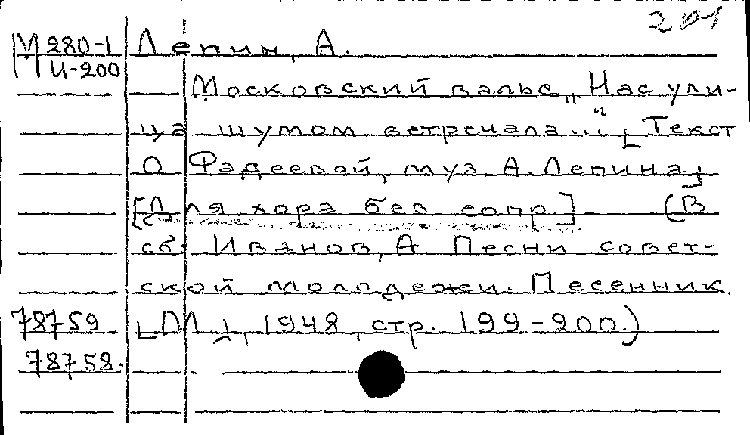 201
М 280-1 Лепин, А.
И-200
Московский вальс „Нас ули-
ца шумом встречала..." [Текст
О Фадеевой, муз. А. Лепина]
[Для хора без сопр.] (В
сб: Иванов, А Песни совет-
ской молодежи. Песенник
78759 [М], 1948, стр. 199-200.)
78758.